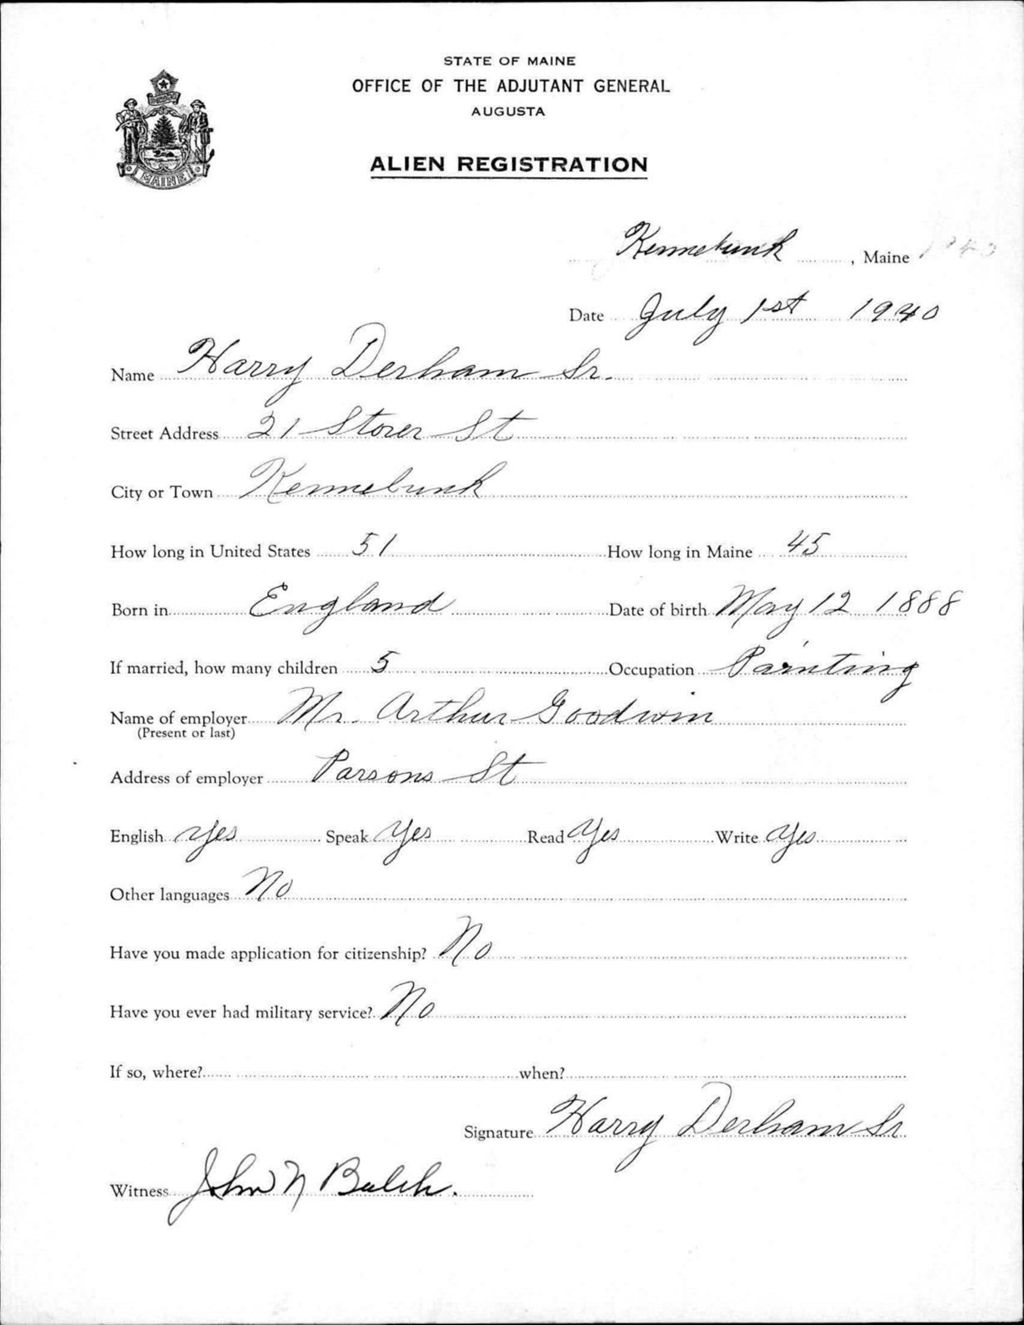 STATE OF MAINE
OFFICE OF THE ADJUTANT GENERAL
AUGUSTA
ALIEN REGISTRATION
MAINE
Kennebunk, Maine
Date July 1st 1940
Name Harry Derham Sr.
Street Address 21 Storer St
City or Town Kennebunk
How long in United States 51 How long in Maine 45
Born in England Date of birth May 12 1888
If married, how many children 5 Occupation Painting
Name of employer Mr. Arthur Goodwin
(Present or last)
Address of employer Parsons St
English yes Speak Yes Read Yes Write Yes
Other languages No
Have you made application for citizenship? No
Have you ever had military service? No
If so, where? when?
Signature Harry Derham Sr.
Witness John N Balch.